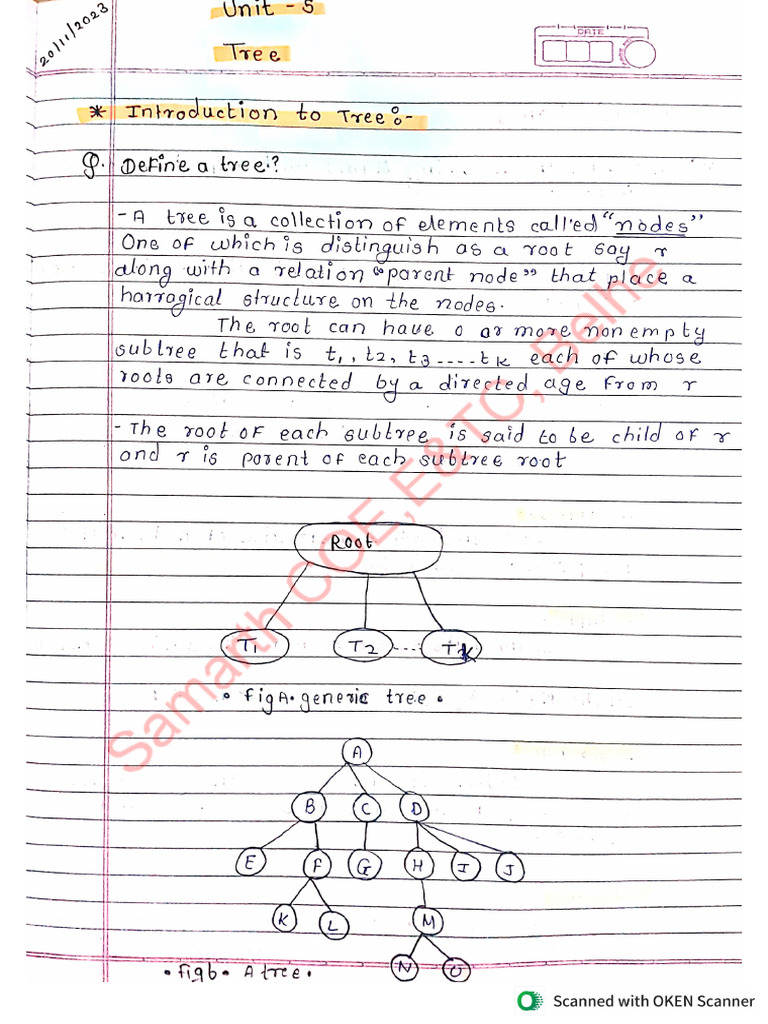 20/11/2023
Unit - 5
Tree
DATE
* Introduction to Tree :-
Q. Define a tree?
- A tree is a collection of elements called "nodes"
One of which is distinguish as a root say r
along with a relation "parent node" that place a
harragical structure on the nodes.
The root can have 0 or more nonempty
subtree that is t1, t2, t3 ---- tk each of whose
roots are connected by a directed age from r
- The root of each subtree is said to be child of r
and r is parent of each subtree root
Root
T1 T2 ---- Tk
• fig A. generic tree •
A
B C D
E F G H I J
K L M
N O
• fig b • A tree •
Samarth COE, E&TC, Belhe
Scanned with OKEN Scanner